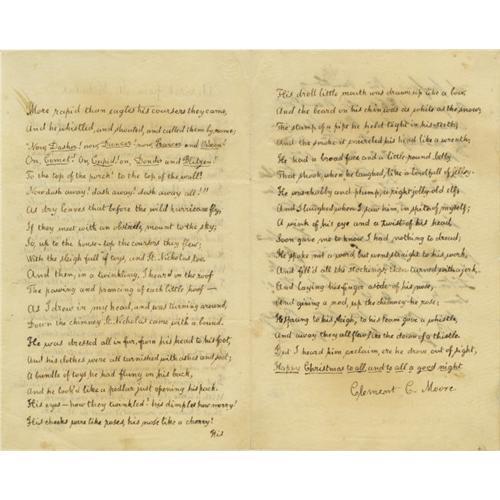 More rapid than eagles his coursers they came,
And he whistled, and shouted, and called them by name;
"Now, Dasher! now, Dancer! now, Prancer and Vixen!
On, Comet! On, Cupid! on, Donder and Blitzen!
To the top of the porch! to the top of the wall!
Now dash away! dash away! dash away all!"
As dry leaves that before the wild hurricane fly,
If they meet with an obstacle, mount to the sky;
So, up to the house-top the coursers they flew,
With the sleigh full of toys, and St. Nicholas too.
And then, in a twinkling, I heard on the roof
The pawing and prancing of each little hoof —
As I drew in my head, and was turning around,
Down the chimney St. Nicholas came with a bound.
He was dressed all in fur, from his head to his foot,
And his clothes were all tarnished with ashes and soot;
A bundle of toys he had flung on his back,
And he look'd like a pedlar just opening his pack.
His eyes — how they twinkled! his dimples how merry!
His cheeks were like roses, his nose like a cherry!
His
His droll little mouth was drawn up like a bow,
And the beard on his chin was as white as the snow;
The stump of a pipe he held tight in his teeth,
And the smoke it encircled his head like a wreath;
He had a broad face and a little round belly
That shook, when he laughed, like a bowlfull of jelly.
He was chubby and plump, a right jolly old elf,
And I laughed when I saw him, in spite of myself;
A wink of his eye and a twist of his head,
Soon gave me to know I had nothing to dread;
He spoke not a word but went straight to his work,
And fill'd all the stockings; then turned with a jerk,
And laying his finger aside of his nose,
And giving a nod, up the chimney he rose;
He sprang to his sleigh, to his team gave a whistle,
And away they all flew like the down of a thistle.
But I heard him exclaim, ere he drove out of sight,
Happy Christmas to all, and to all a good night
Clement C. Moore.